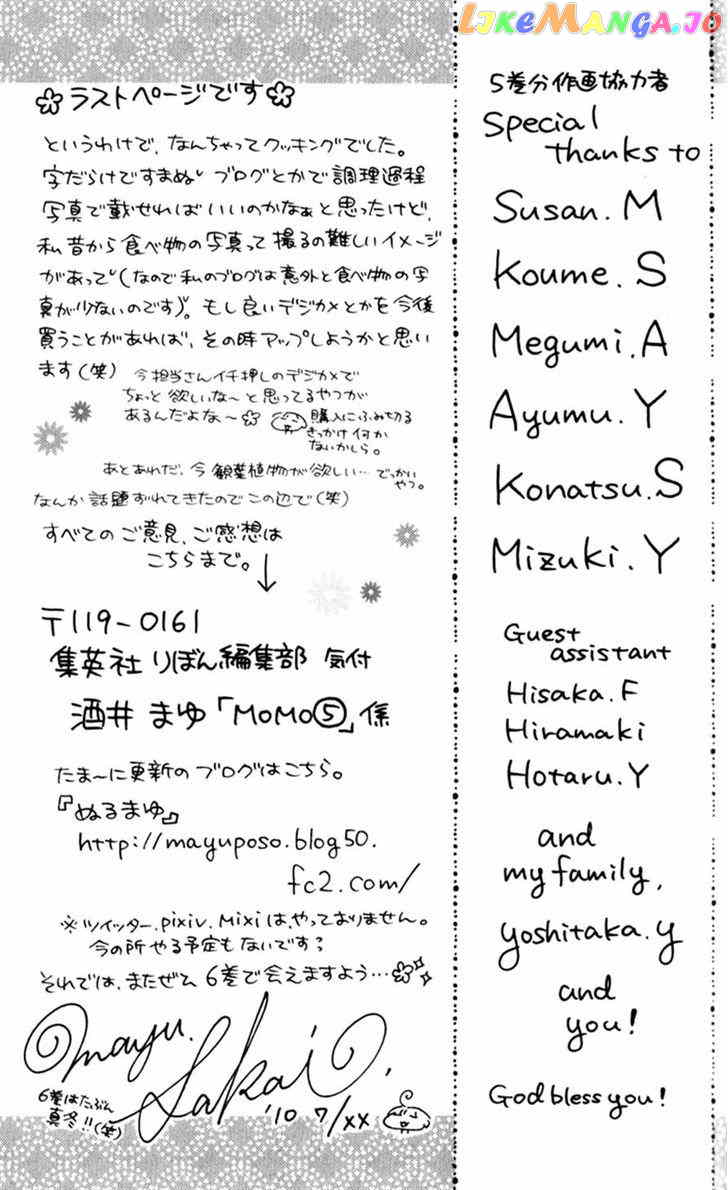 LIKEMANGA.IO
ラストページです
というわけで、なんちゃってクッキングでした。
字だらけですまぬ ブログとかで調理過程
写真で載せればいいのかなぁと思ったけど、
私昔から食べ物の写真って撮るの難しいイメージ
があって(なので私のブログは意外と食べ物の写
真が少ないのです)。もし良いデジカメとかを今後
買うことがあれば、その時アップしようかと思い
ます(笑)
今担当さんイチ押しのデジカメで
ちょっと欲しいな〜と思ってるやつが
あるんだよな〜
購入にふみ切る
きっかけ何か
ないかしら。
あとあれだ、今観葉植物が欲しい…でっかい
やつ。
なんか話題ずれてきたのでこの辺で(笑)
すべてのご意見、ご感想は
こちらまで。↓
〒119-0161
集英社 りぼん編集部 気付
酒井 まゆ「MOMO⑤」係
たま〜に更新のブログはこちら。
『ぬるまゆ』
http://mayuposo.blog50.
fc2.com/
※ツイッター、pixiv、Mixiは、やっておりません。
今の所やる予定もないです?
それでは、またぜひ 6巻で会えますよう…
mayu.
Sakai
'10 7/XX
6巻はたぶん
真冬!!(笑)
5巻分作画協力者
Special
thanks to
Susan. M
Koume. S
Megumi. A
Ayumu. Y
Konatsu. S
Mizuki. Y
Guest
assistant
Hisaka. F
Hiramaki
Hotaru. Y
and
my family,
yoshitaka. y
and
you!
God bless you!